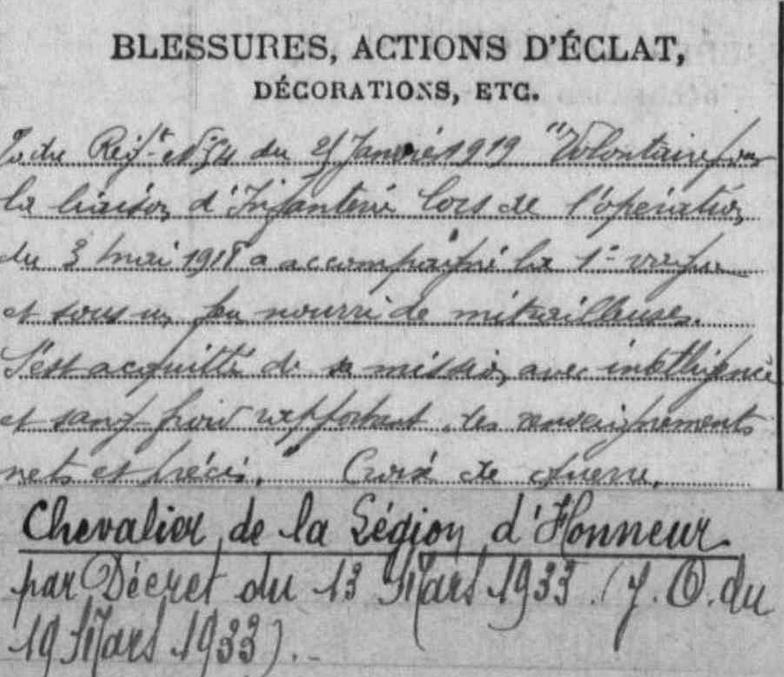 BLESSURES, ACTIONS D'ÉCLAT,
DÉCORATIONS, ETC.
du Régt du Janvier 1919 "Volontaire pour
la liaison d'Infanterie lors de l'opération
du 3 mai 1918 a accompagné la 1e vague
et sous un feu nourri de mitrailleuses.
S'est acquitté de sa mission avec intelligence
et sang-froid rapportant des renseignements
nets et précis." Croix de Guerre.
Chevalier de la Légion d'Honneur
par Décret du 13 Mars 1933 (J.O. du
19 Mars 1933).